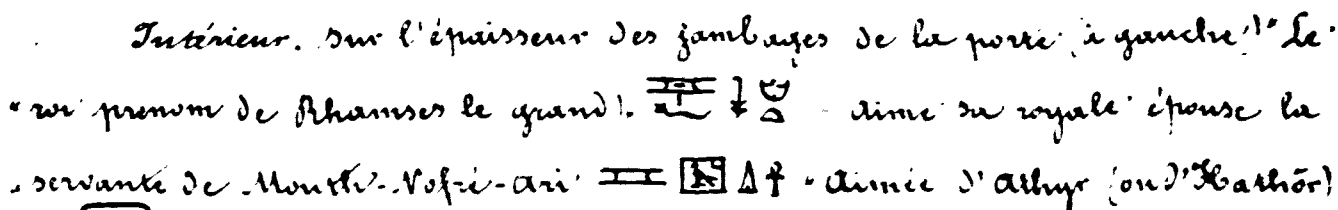 Intérieur. Sur l'épaisseur des jambages de la porte (à gauche) "Le
"roi (prénom de Rhamsès le grand). aime sa royale épouse la
"servante de Mouth-Nofré-Ari "aimée d'Athyr (ou d'Hathôr)